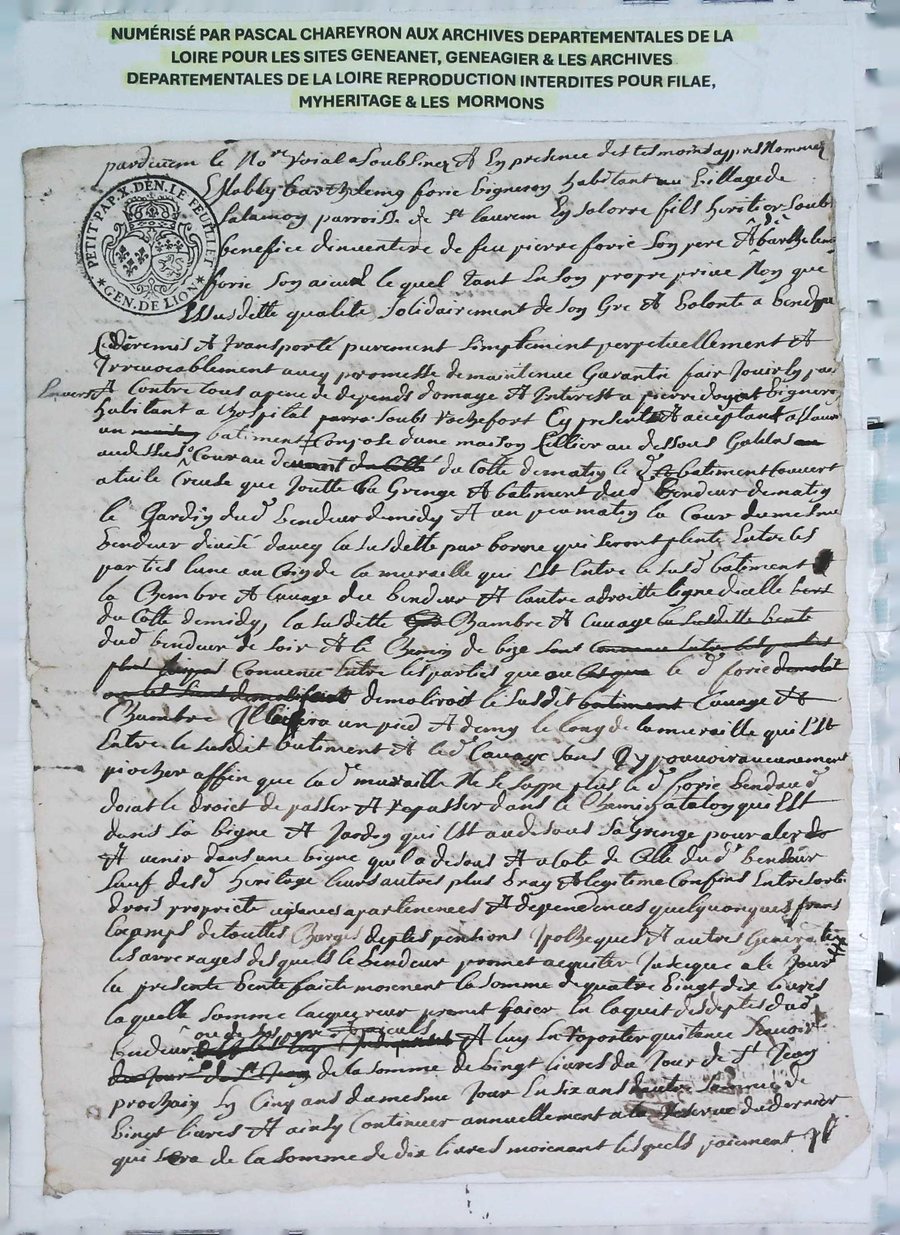 NUMÉRISÉ PAR PASCAL CHAREYRON AUX ARCHIVES DEPARTEMENTALES DE LA
LOIRE POUR LES SITES GENEANET, GENEAGIER & LES ARCHIVES
DEPARTEMENTALES DE LA LOIRE REPRODUCTION INTERDITES POUR FILAE,
MYHERITAGE & LES MORMONS
pardeuem le No.re royal Soubsinez Et En presence des tesmoins appres Nommez
PETIT PAP. X. DEN. LE FEUILLET
GEN. DE LION
Estably barthelemy forie vigneron habitant au village de
Salamon parroisse de St laurem En Solorre fils heritier Soub
benefice dinventere de feu pierre forie Son pere Et de barthelemy
forie Son aieul le quel tant En Son propre prive Non que
Susdette qualite Solidairement de Son Gre Et volonte a vendu
Cedé remis Et transporté purement Simplement perpetuellement Et
Irrevocablement avec promesse de maintenue Garantir fair Jouir
Envers Et Contre tous a peine de depends domage Et Interest a pierre vigneron
habitant a hospital Soubs rochefort Cy present Et acceptant
un batiment Compose dune maison Cellier au dessous Galetas
audessus Cour au du Cotte de matin le d batiment Couvert
a tuile Creuse que Joutte la Grenge Et batiment dud vendeur de matin
le Jardin dud vendeur de midy Et un peu matin la Cour du mesme
vendeur divisé davec la Susdette par borne qui Seront plente Entre les
parties lune au Coin de la muraille qui Est Entre le Susd batiment
la Chembre Et Cuvage du vendeur Et lautre a droitte ligne dicelle vers
du Cotte de midy, la Susdette Chambre Et Cuvage
dud vendeur de Soir Et le Chemin de bize
Convenu Entre les parties que le d forie
demoliroit le Susdit Cuvage Et
Chambre Il laissera un pied Et demy le long de la muraille qui Est
Entre le Susdit batiment Et le d Cuvage Sans y pouvoir aucunement
piocher affin que lad muraille Ne Se Sappe plus le d forie vend aud
doiat le droict de passer Et repasser dans le Chemin a talon qui Est
dans la vigne Et Jardin qui Est audessous Sa Grenge pour aler
Et venir dans une vigne qu'il a desous Et a Cote de Celle dud vendeur
Sauf desd heritage leurs autres plus vray Et legitime Confins Entre Sorti
drois propriete aisances apartenences Et dependences quelquonques frans
de touttes Charges deptes pensions Ipotheques Et autres Generalle
les arrerages des quels le vendeur promet acquiter Jusque a le Jour
la presente vente faicte moienent la Somme de quatre vingt dix livres
laquelle Somme lacquereur promet faier En laquit des deptes dud
vendeur ou de Ses pere Et aieuls Et luy En raporter quitence Scavoir
de la Somme de vingt livres du Jour de St Jean
prochain En Cinq ans du mesme Jour En Six ans autre Somme de
vingt livres Et ainsy Continuer annuellement a la reserve du dernier
qui Sera de la Somme de dix livres moienant lesquels paiement